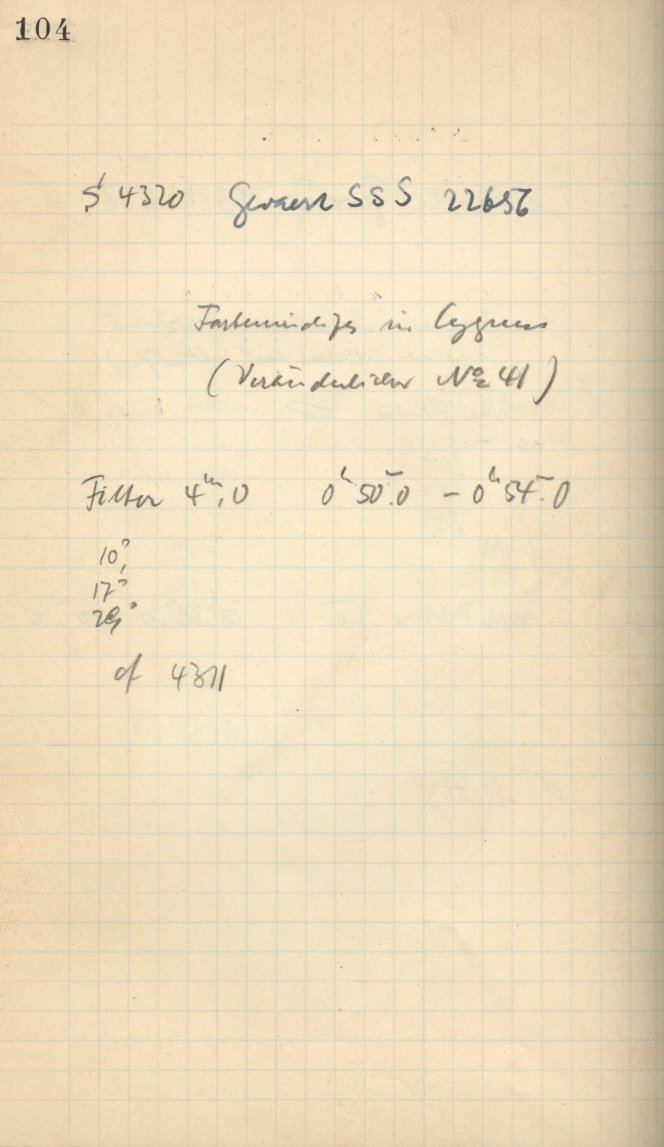 104
S 4320 Gevaert SSS 22656
Farbenindizes in Cygnus
(Veränderlicher No 41)
Filter 4ᵐ,0 0ʰ 50ᵐ.0 – 0ʰ 54ᵐ.0
10°,
17°
29°
cf 4311